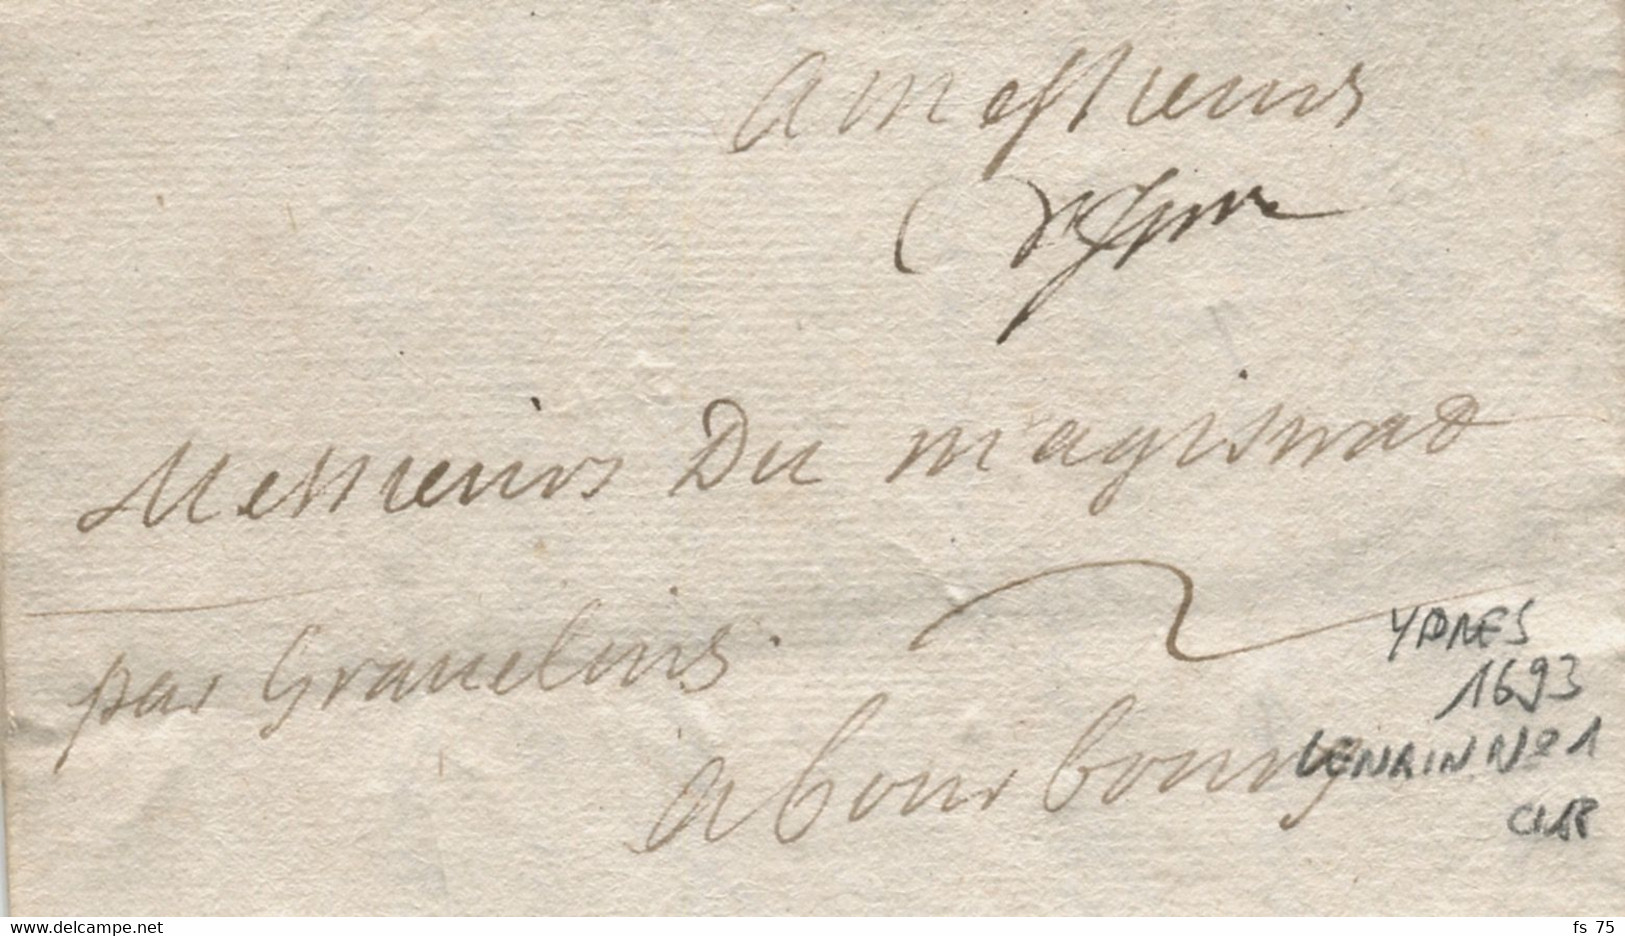 A messieurs
d'Ypres
Messieurs Du magistrat
par Gravelins
a bourbourg
YPRES
1693
LENAIN N° 1
fs 75
www.delcampe.net